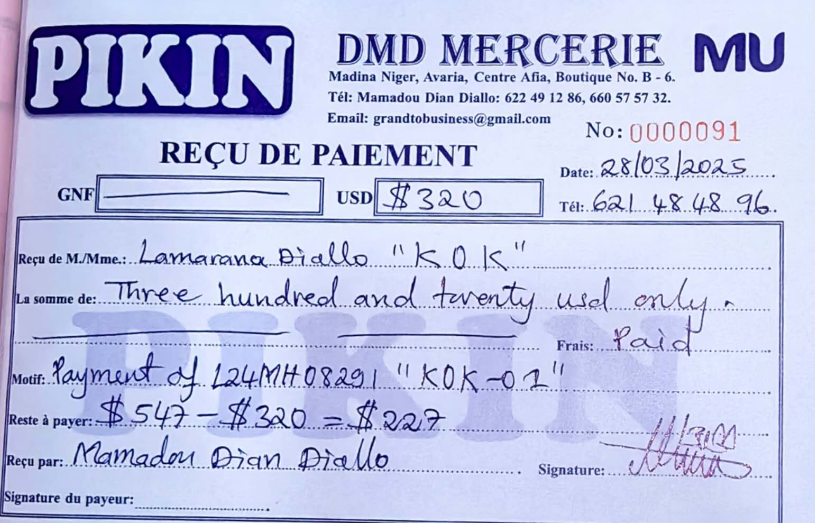 PIKIN
DMD MERCERIE
MU
Madina Niger, Avaria, Centre Afia, Boutique No. B - 6.
Tél: Mamadou Dian Diallo: 622 49 12 86, 660 57 57 32.
Email: grandtobusiness@gmail.com
No: 0000091
REÇU DE PAIEMENT
Date: 28/03/2025
GNF
USD $320
Tél: 621 48 48 96.
Reçu de M./Mme.: Lamarana Diallo "KOK"
La somme de: Three hundred and twenty usd only.
Frais: Paid
PIKIN
Motif: Payment of L24MH08291 "KOK-01"
Reste à payer: $547 - $320 = $227
Reçu par: Mamadou Dian Diallo
Signature:
Signature du payeur: